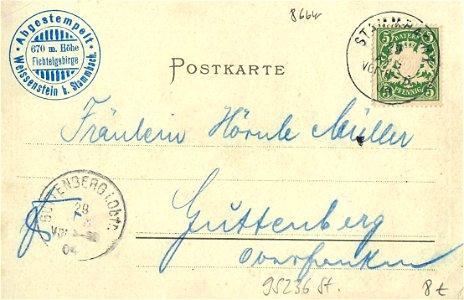 866w
Abgestempelt
670 m. Höhe
Fichtelgebirge
Weissenstein b. Stammbach.
STAMMBACH
BAYERN
5
PFENNIG
POSTKARTE
Fräulein Hörnle Müller
GUTTENBERG I. Obfr.
29
04
Guttenberg
Oberfranken
95236 St.
8 €